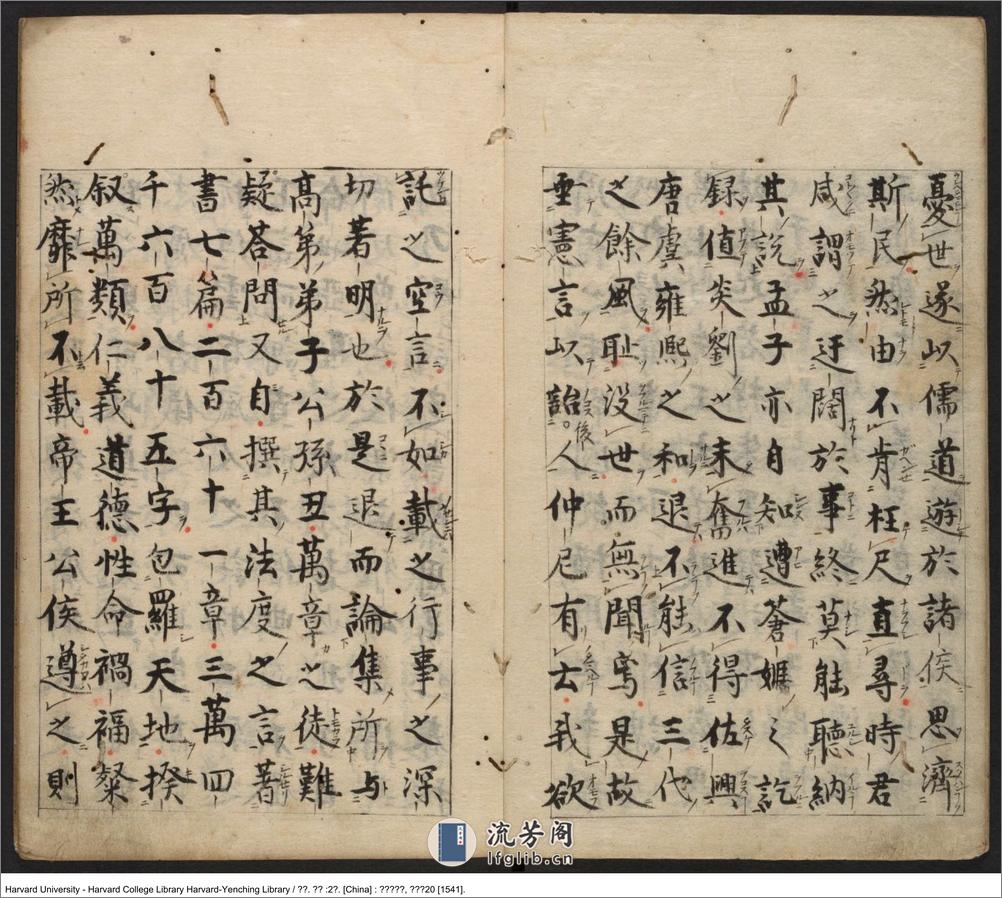 憂世遂以儒道遊於諸侯思濟
斯民然由不肯枉尺直尋時君
咸謂之迂闊於事終莫能聽納
其說孟子亦自知遭蒼姬之訖
録值炎劉之未奮進不得佐興
唐虞雍熙之和退不能信三代
之餘風耻没世而無聞焉是故
垂憲言以詒後人仲尼有云我欲
託之空言不如載之行事之深
切著明也於是退而論集所与
高弟弟子公孫丑萬章之徒難
疑答問又自撰其法度之言著
書七篇二百六十一章三萬四
千六百八十五字包羅天地揆
叙萬類仁義道德性命禍福粲
然靡所不載帝王公侯遵之則
流芳阁
lfglib.cn
Harvard University - Harvard College Library Harvard-Yenching Library / ??. ?? :2?. [China] : ?????, ???20 [1541].